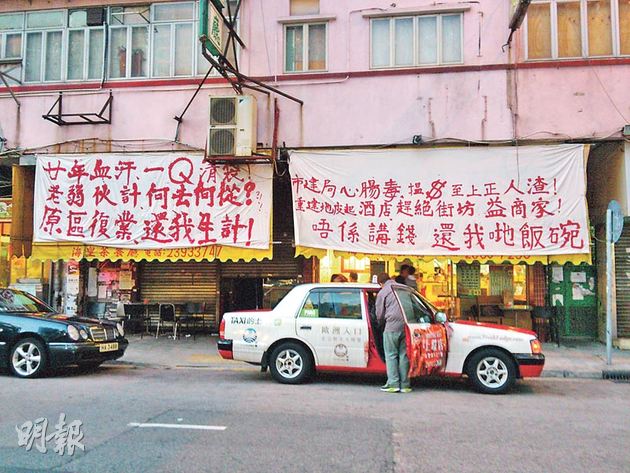 廿年血汗一Q清袋!
老弱伙計何去何從?
原區復業 還我生計!
市建局心腸毒 搵$至上正人渣!
重建地皮起酒店趕絕街坊 益商家!
唔係講錢 還我哋飯碗
23933747
TAXI的士
歐洲入口
明報